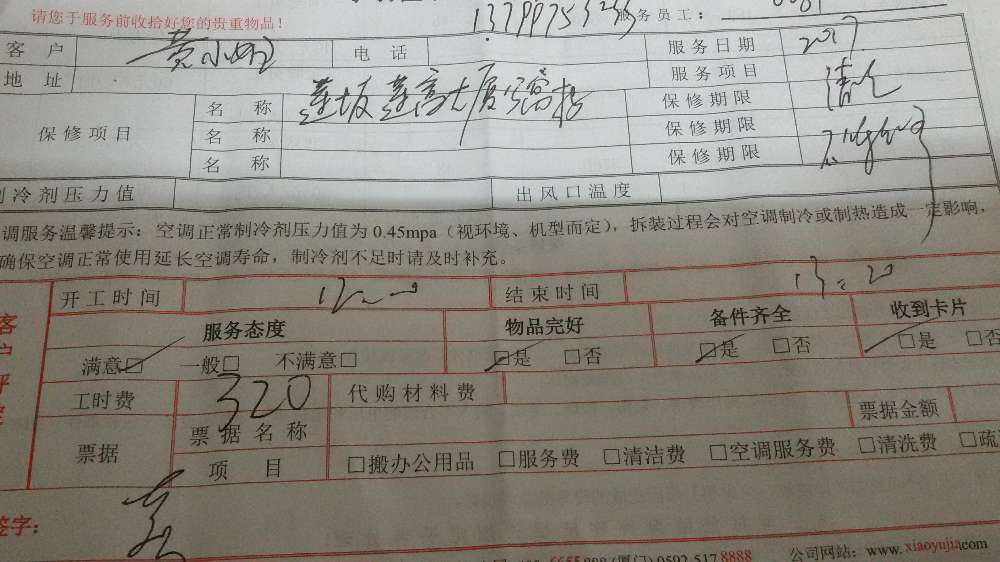 请您于服务前收拾好您的贵重物品！ 服务员工：
客户 黄小 电话 服务日期 2017
地址 莲坂莲富大厦 服务项目 清
保修项目 名称 保修期限
名称 保修期限
名称 保修期限
制冷剂压力值 出风口温度
调服务温馨提示：空调正常制冷剂压力值为 0.45mpa（视环境、机型而定），拆装过程会对空调制冷或制热造成一定影响，
确保空调正常使用延长空调寿命，制冷剂不足时请及时补充。
开工时间 结束时间 13:20
服务态度 物品完好 备件齐全 收到卡片
满意□ 一般□ 不满意□ □是 □否 □是 □否 □是 □否
工时费 320 代购材料费
票据 票据名称 票据金额
项目 □搬办公用品 □服务费 □清洁费 □空调服务费 □清洗费 □疏
签字：
(厦门)0592-5178888 公司网站：www.xiaoyujia.com